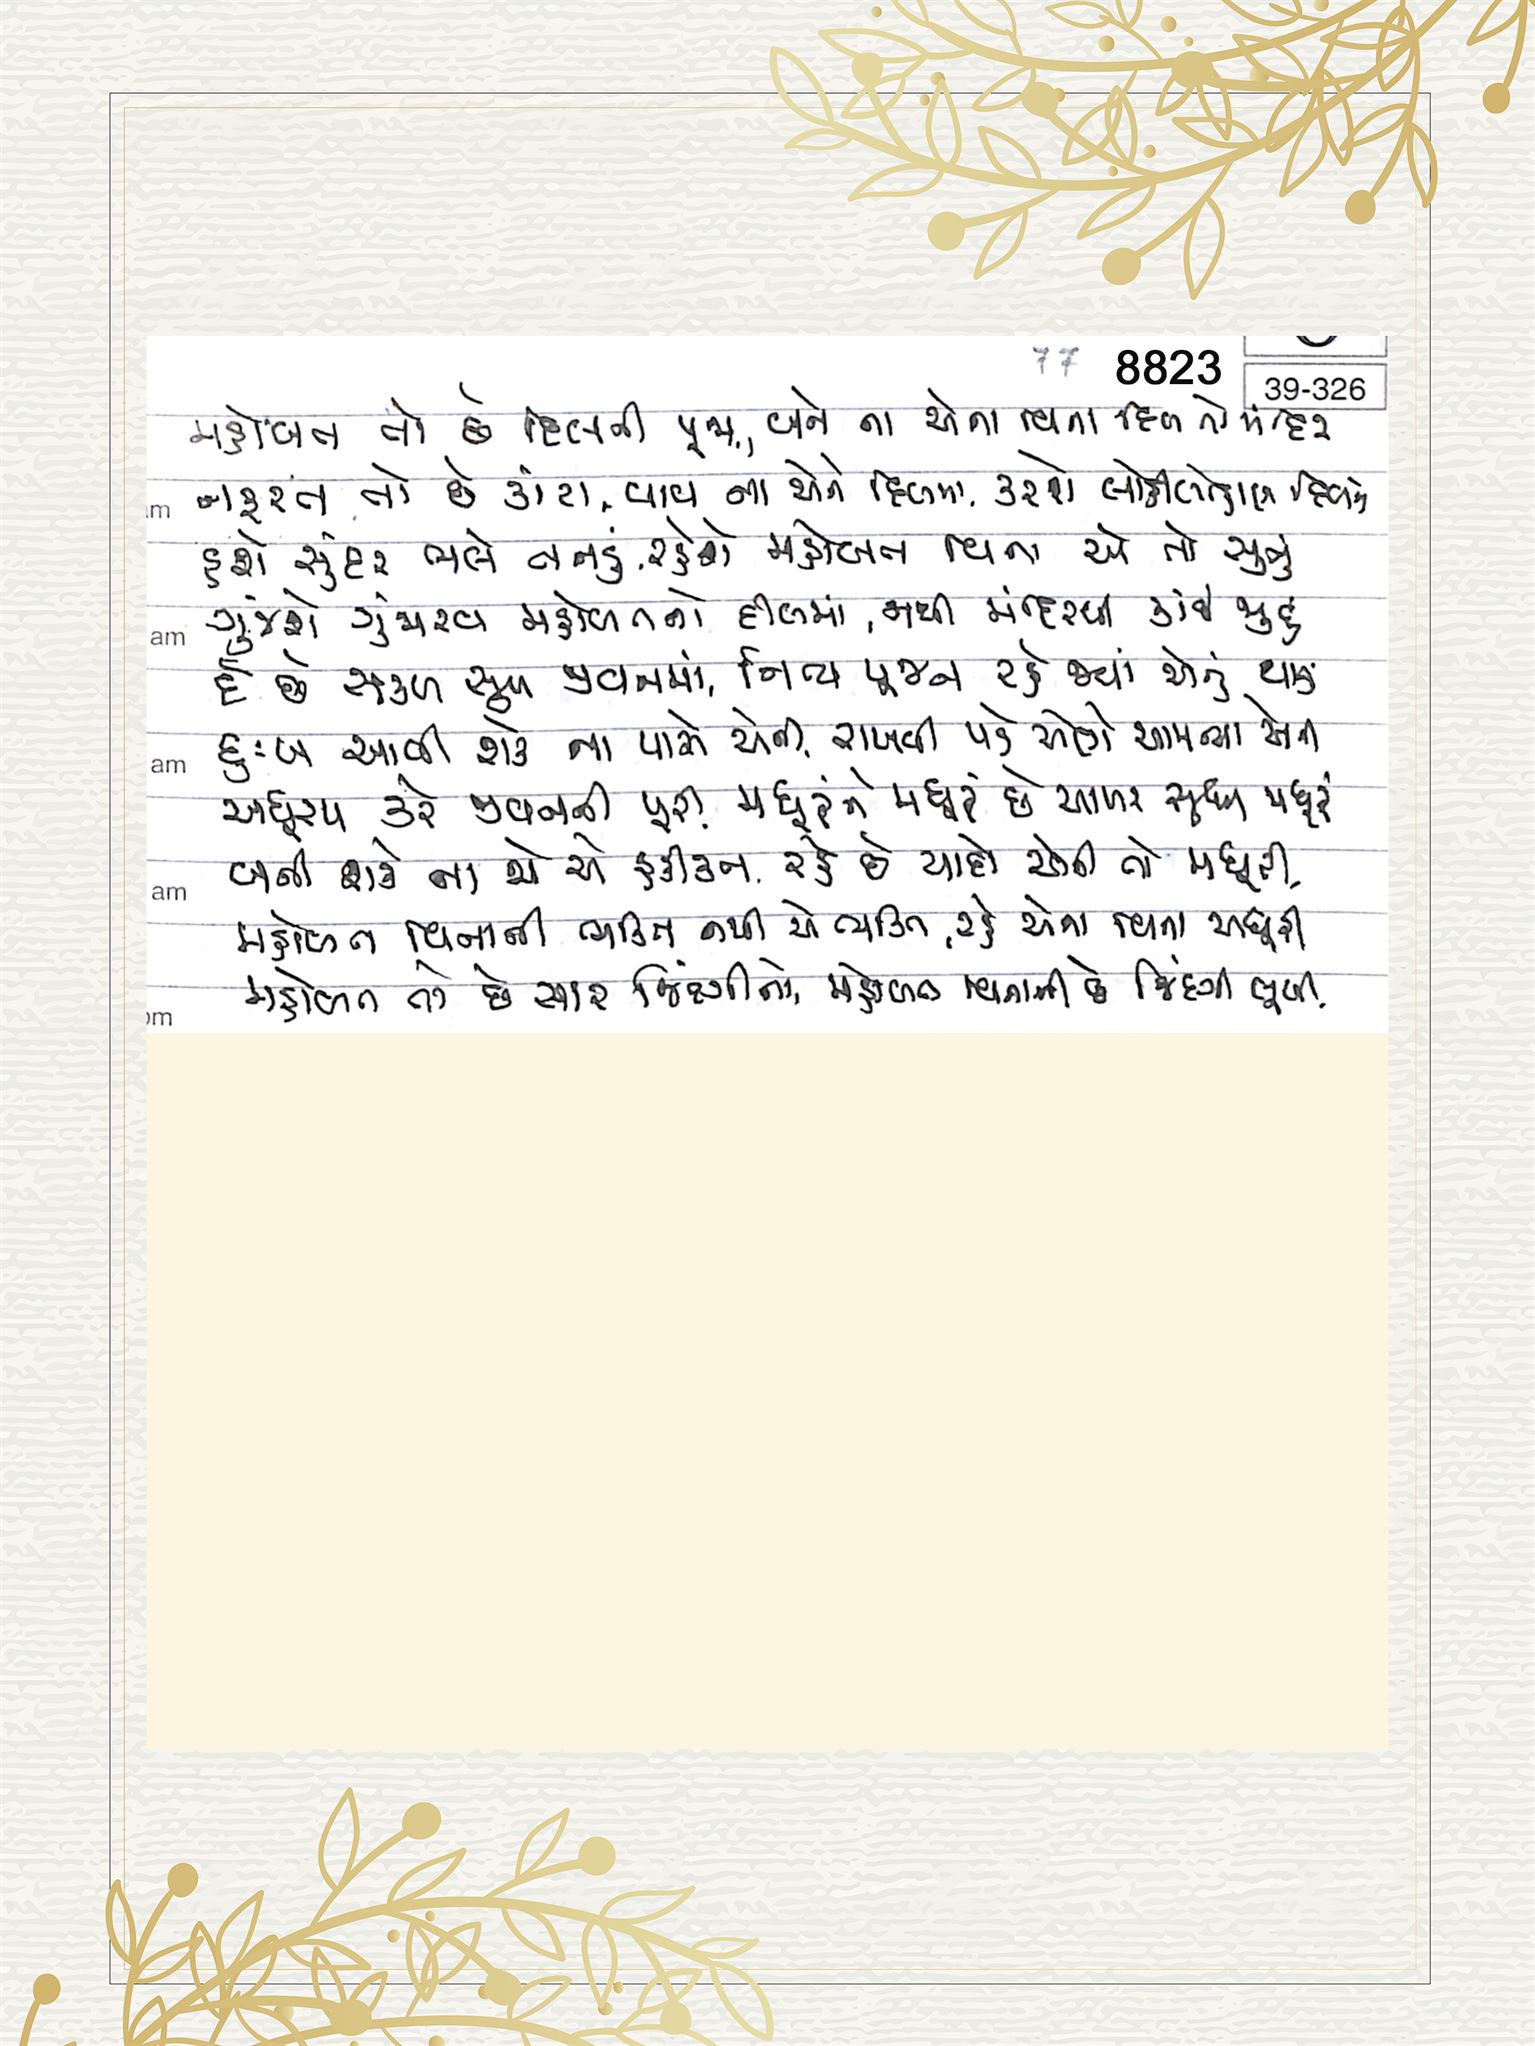 77 8823
39-326
મહોબત તો છે દિલની પૂજા, બને ના એના વિના દિલ તો મંદિર
નફરત તો છે કાંટા, વાવ ના એને દિલમાં, કરશે લોહીલોહાણ દિલને
હશે સુંદર ભલે તનડું, રહેશે મહોબત વિના એ તો સુનું
am ગુંજશે ગુંજારવ મહોબતનો દીલમાં, નથી મંદિરથી કાંઈ જુદુ
દે છે સકળ સુખ જીવનમાં, નિત્ય પૂજન રહે જ્યાં એનું થાતું
am દુઃખ આવી શકે ના પાસે એની, રાખવી પડે એણે આમન્યા એની
અધૂરપ કરે જીવનની પૂરી, મધૂરું ને મધૂરું છે આખર સુધી મધૂરું
am બની શકે ના એ એ હકીકત, રહે છે યાદો એની તો મધૂરી
મહોબત વિનાની વ્યક્તિ નથી એ વ્યક્તિ, રહે એના વિના અધૂરી
મહોબત તો છે સાર જિંદગીનો, મહોબત વિનાની છે જિંદગી લૂખી.